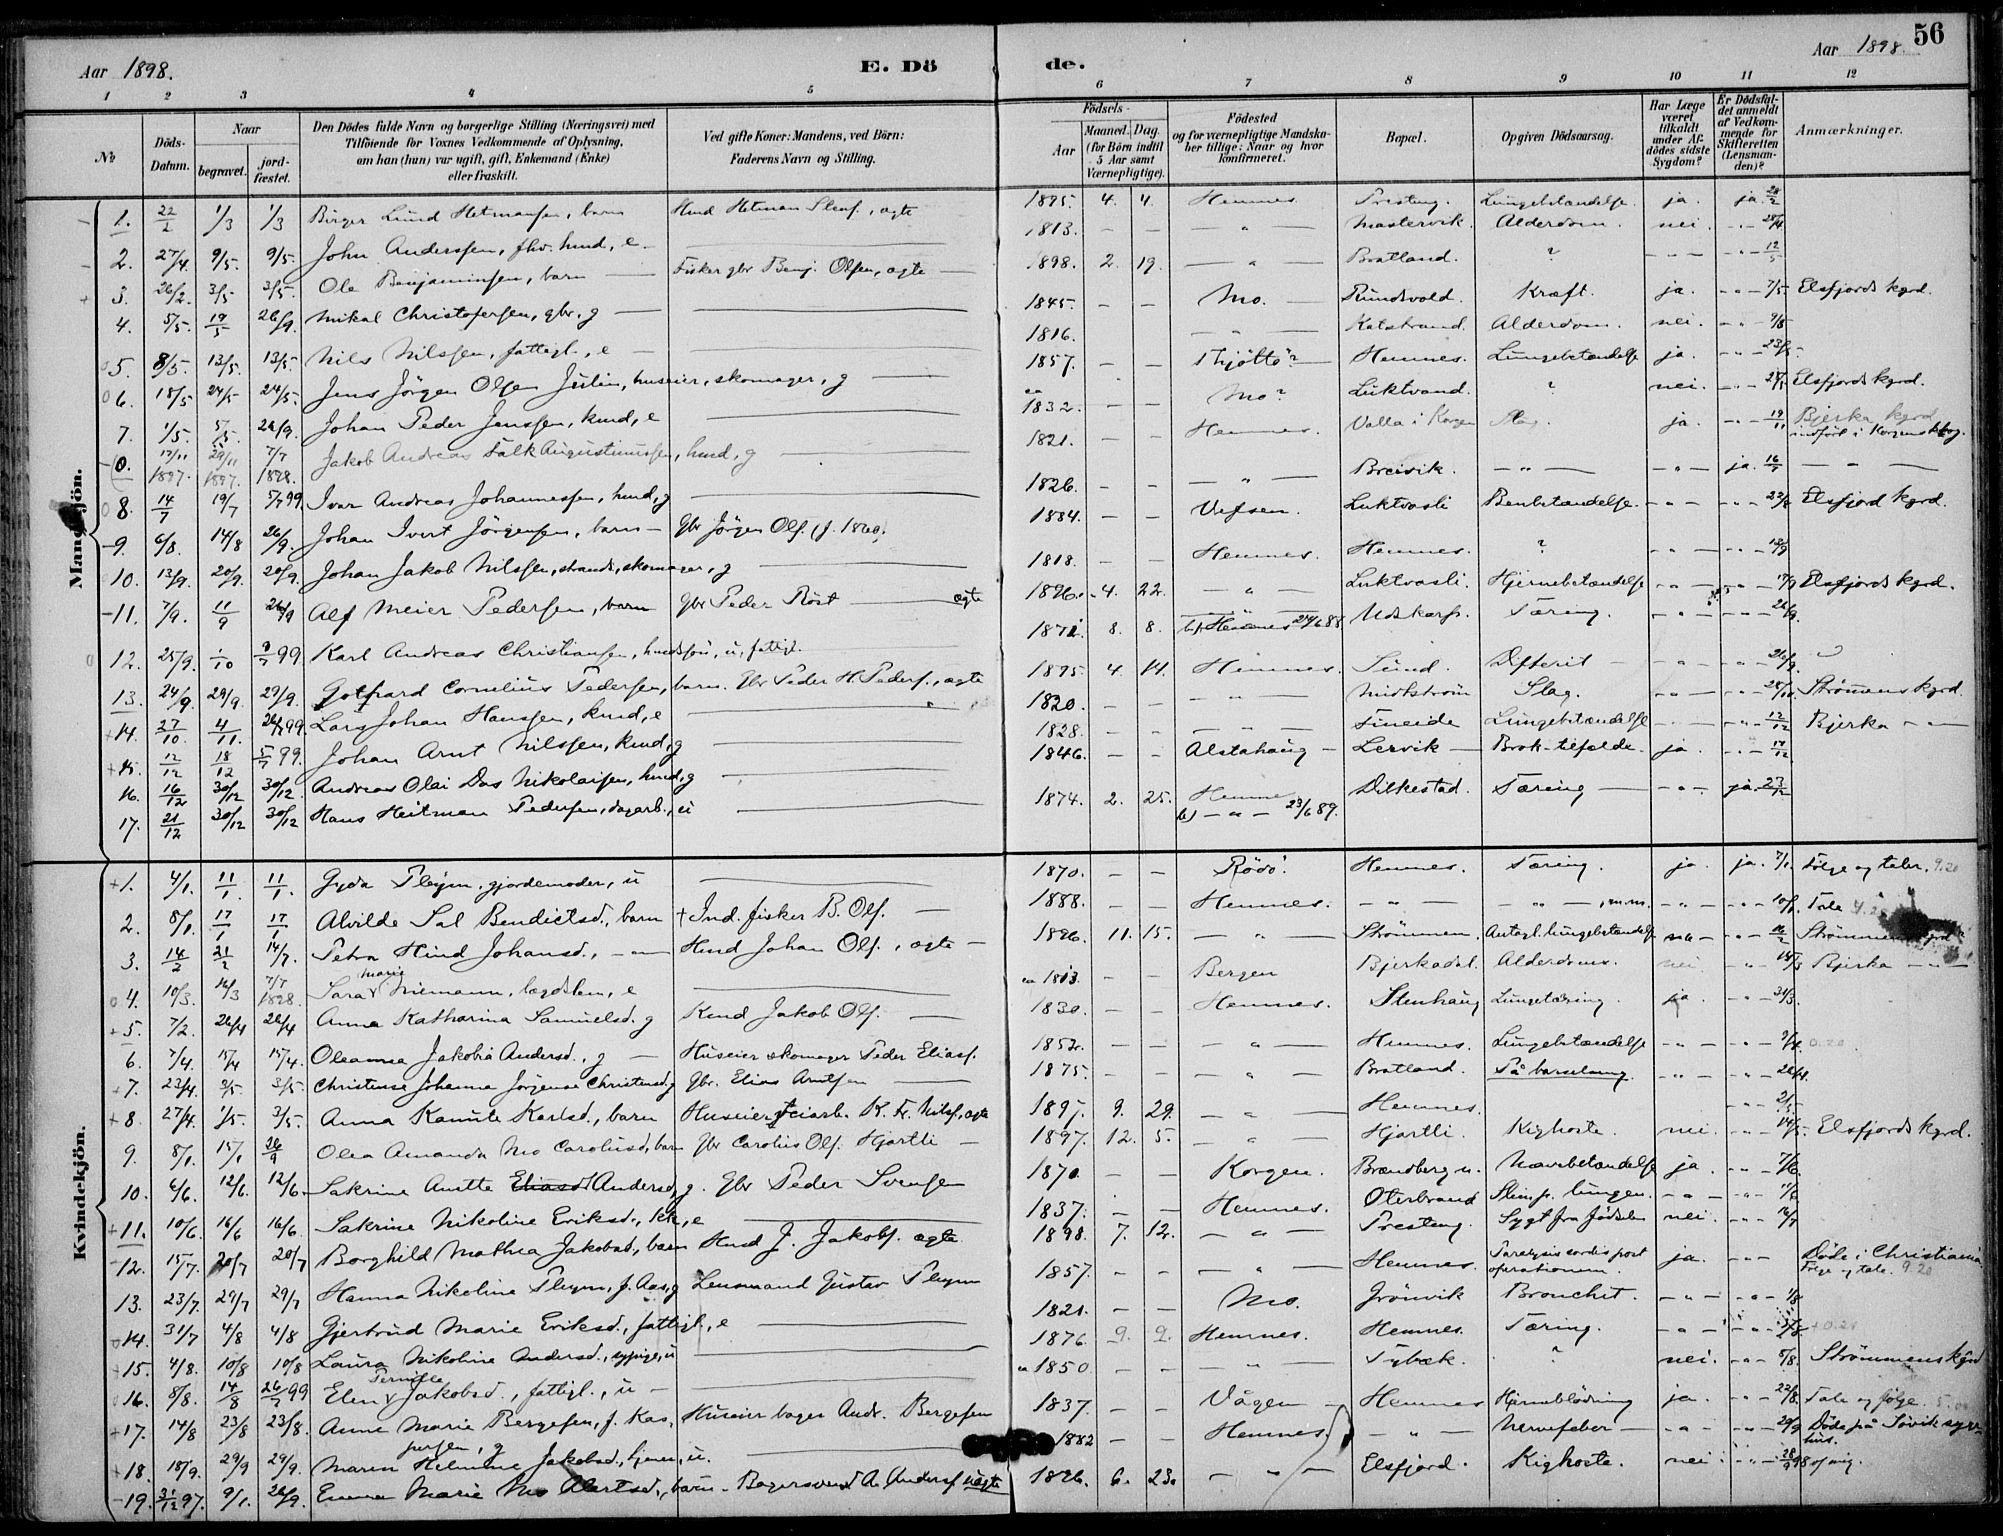 Aar 1898. E. Dö de. Aar 1898. 56
1 2 3 4 5 6 7 8 9 10 11 12
No Döds-Datum. Naar begravet. jord-fæstet. Den Dödes fulde Navn og borgerlige Stilling (Næringsvei) med Tilföiende for Voxnes Vedkommende af Oplysning, om han (hun) var ugift, gift, Enkemand (Enke) eller fraskilt. Ved gifte Koner: Mandens, ved Börn: Faderens Navn og Stilling. Födsels- Aar Maaned. Dag. (for Börn indtil 5 Aar samt Værnepligtige). Födested og for værnepligtige Mandskaber tillige: Naar og hvor Konfirmeret. Bopæl. Opgiven Dödsaarsag. Har Læge været tilkaldt under Afdödes sidste Sygdom? Er Dödsfaldet anmeldt af Vedkommende for Skifteretten (Lensmanden)? Anmærkninger.
Mandkjön.
1. 22/2 1/3 1/3 Birger Lund Hetmansen, barn Hmd Hetman Stens., ægte 1895. 4. 4. Hemnes Presteng. Lungebetændelse ja. ja 28/2
2. 27/4 9/5. 9/5. John Anderssen, fhv. hmd, e — 1813. — — — " — Mastervik. Alderdom. nei. - " - 28/4
3. 26/2. 3/5 3/5. Ole Benjaminsen, barn — Fisker gbr Benj. Olsen, ægte — 1898. 2. 19. — " — Bratland. ? - " - - " - 12/5
4. 5/5. 19/5 26/9. Mikal Christofersen, gbr, g — 1845. — — Mo. — Rundvold. Kræft. ja. - " - 7/5. Elsfjords kgrd.
5. 8/5. 13/5. 13/5. Nils Nilssen, fattigl., e — 1816. — " — Kalstrand. Alderdom. nei. - " - 9/5
6. 18/5 24/5 24/5. Jens Jörgen Olsen Julin, huseier, skomager, g — 1857. — — Thjöttö? Hemnes. Lungebetændelse ja. - " - 23/5.
7. 1/5. 5/5. 26/9. Johan Peder Jenssen, kmd, e — 1832. — — Mo? Luktvand. ? nei. - " - Elsfjords kgrd.
0. 17/11 1897. 29/11 1897. 7/7 1898. Jakob Andreas Falk Augustinussen, hmd, g — 1821. — — Hemnes. Valla i Korgen Slag. ja. - " - 19/11 Bjerka kgrd indført i Korgens kbog.
8. 14/7 19/7 5/7 99 Ivar Andreas Johannessen, hmd, g — 1826. — — — " — Breivik. — " — - " - ja 16/7 — " —
9. 6/8. 14/8 26/9. Johan Ivert Jörgensen, barn — Gbr Jörgen Ols. (f. 1860). 1884. — — Vefsen. Luktvasli Benbetændelse - " - - " - 22/8 Elsfjord kgrd.
10. 13/9. 20/9. 20/9. Johan Jakob Nilssen, strands., skomager, g — 1818. — — Hemnes. Hemnes. ? - " - - " -
11. 7/9. 11/9 26/9 Alf Meier Pedersen, barn Gbr Peder Röst — ægte 1896. 4. 22. — " — Luktvasli. Hjernebetændelse - " - - " - 17/9 Elsfjords kgrd.
12. 25/9. 1/10 9/7 99 Karl Andreas Christiansen, hmdssön, u, fattigl. 1871. 8. 8. Hemnes 24/6 88 Udskarp. Tæring. - " - - " - 26/9.
13. 24/9. 29/9. 29/9. Gotfrard Cornelius Pedersen, barn. Gbr Peder H. Peders., ægte 1895 4. 14. Hemnes. Sund. Difterit — - " - - " - 26/9.
14. 27/10. 4/11. 26/7 99. Lars Johan Hanssen, kmd, e — 1820. — — — " — Midtström Slag. - " - - " - Strömmens kgrd.
15. 12/12 18/12 5/7 99. Johan Arnt Nilssen, kmd, g — 1828. — — — " — Fineide Lungebetændelse - " - - " - 12/12 Bjerka — " —
16. 16/12 30/12 30/12. Andreas Olai Das Nikolaisen, hmd, g — 1846. — — Alstahaug — Lervik — Brok-tilfælde. ja. - " - 17/12
17. 21/12 30/12 30/12 Hans Heitman Pedersen, dagarb., u — 1874. 2. 25. Hemnes b) — " — 23/6 89. Dilkestad. Tæring — - " - ja 27/12
Kvindekjön.
1. 4/1. 11/1 11/1. Gyda Pleym, gjordemoder, u — 1870. — — Rödö. Hemnes. Tæring. ja. ja. 7/1. Følge og taler. 9.20
2. 8/1. 17/1 17/1 Alvilde Sal Bendictsd., barn + Ind. fisker B. Ols. — 1888. — — Hemnes. — " — — " —, m.m. - " - - " - 10/1. Tale
3. 14/2 21/2 14/7. Petra Hind Johansd., — " — Hmd Johan Ols., ægte — 1896. 11. 15. — " — Strömmen. Antagl. lungebetændelse - " - 16/2 Strömmens kgrd
4. 10/3. 16/3 7/7 1898. Sara Marie Niemann, lægdslem, e — ca 1813 — — Bergen Bjerkadal. Alderdoms. nei - " - 14/3 Bjerka — " —
5. 7/2. 26/4 26/4 Anna Katharina Samuelsd. g Kmd Jakob Ols. — 1830. — — Hemnes. Stenhaug Lungetæring. ja - " - 31/3.
6. 7/4. 15/4 15/4. Oleanna Jakobia Andersd., g — Huseier skomager Peder Elias. 1852. — — — " — Hemnes. Lungebetændelse - " - - " - 9/4
7. 23/4. 3/5. 3/5. Christense Johanna Jörgense Christensd, g Gbr. Elias Arntsen — 1875. — — — " — Bratland. På barselseng. - " - - " - 26/4.
8. 27/4. 1/5. 3/5. Anna Kamile Karlsd., barn Huseier veiarb. K. Fr. Nils., ægte 1897. 9. 29. — " — Hemnes. - " - 2/5
9. 8/1. 15/1 26/9 Olea Amanda Mo Carolusd., barn Gbr Carolius Ols. Hjartli — 1897. 12. 5. — " — Hjartli. Kighoste. nei. - " - 14/5. Elsfjords kgrd.
10. 6/6. 12/6. 12/6. Sakrine Anette Eliasd Andersd, g. Gbr Peder Svensen 1870. — — Korgen. Brændberg n. Navebetændelse ja. - " - 7/6.
11. 10/6. 16/6 16/6 Sakrine Nikoline Eriksd., kk, e — 1837. — — Hemnes. Oterbrand Slim p. lungen. - " - - " - 11/6
12. 15/7. 20/7 20/7 Borghild Mathea Jakobsd., barn Hmd J. Jakobs. ægte 1898. 7. 12. — " — Presteng. Sygt fra födselen nei. - " - 16/7
13. 23/7. 29/7 29/7 Hanna Nikoline Pleym, f. Aas, g Lensmand Gustav Pleym 1857. — — — " — Hemnes. Paralysis cordis post operationem. ja. - " - Döde i Christiania Følge og tale. 9.20
14. 31/7 4/8 4/8 Gjertrud Marie Eriksd., fattigl., e — 1821. — — Mo. Grönvik Bronchit. - " - - " - 1/8
15. 4/8. 10/8 10/8 Laura Nikoline Andersd., sypige, u — 1876. 9. 2. Hemnes. Hemnes. Tæring. - " - - " -
16. 8/8. 14/8 26/7 99 Elen Pernille Jakobsd., fattigl., u — ca 1850 — — — " — Sybæk. ? nei. - " - 8/8. Strömmens kgrd
17. 14/8 23/8 23/8. Anne Marie Bergesen, f. Kaspersen, g Huseier bager Andr. Bergesen 1837. — — Vågen — Hemnes Hjerneblödning ja. - " - 22/8. Tale og følge.
18. 18/9. 29/9 29/9. Maren Helmine Jakobsd., tjener, u. — 1882 — — Hemnes. — " — Nervefeber — - " - - " - 29/9 Döde på Søvik sygehus.
19. 31/12 97. 9/1. 26/9. Emma Marie Mo Albertsd., barn - Bagersvend A. Anders. uægte 1896. 6. 23. — " — Elsfjord. Kighoste. nei. - " -